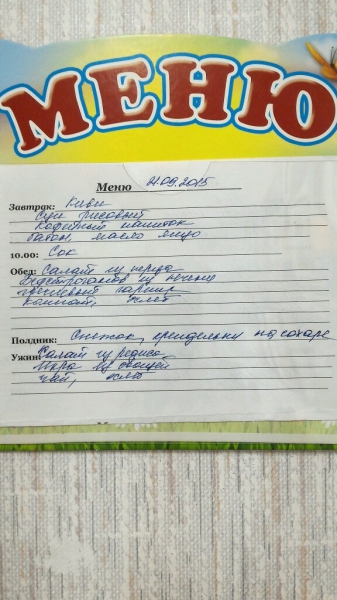 МЕНЮ
Меню 21.09.2015
Завтрак: Киви
Суп рисовый
Кофейный напиток
батон, масло яйцо
10.00: Сок
Обед: Салат из перца
Бефстроганов из печени
гарнир
Компот, хлеб
Полдник: Снежок, крендельки на сахаре
Ужин: Салат из редиса
Икра из овощей
Чай, хлеб